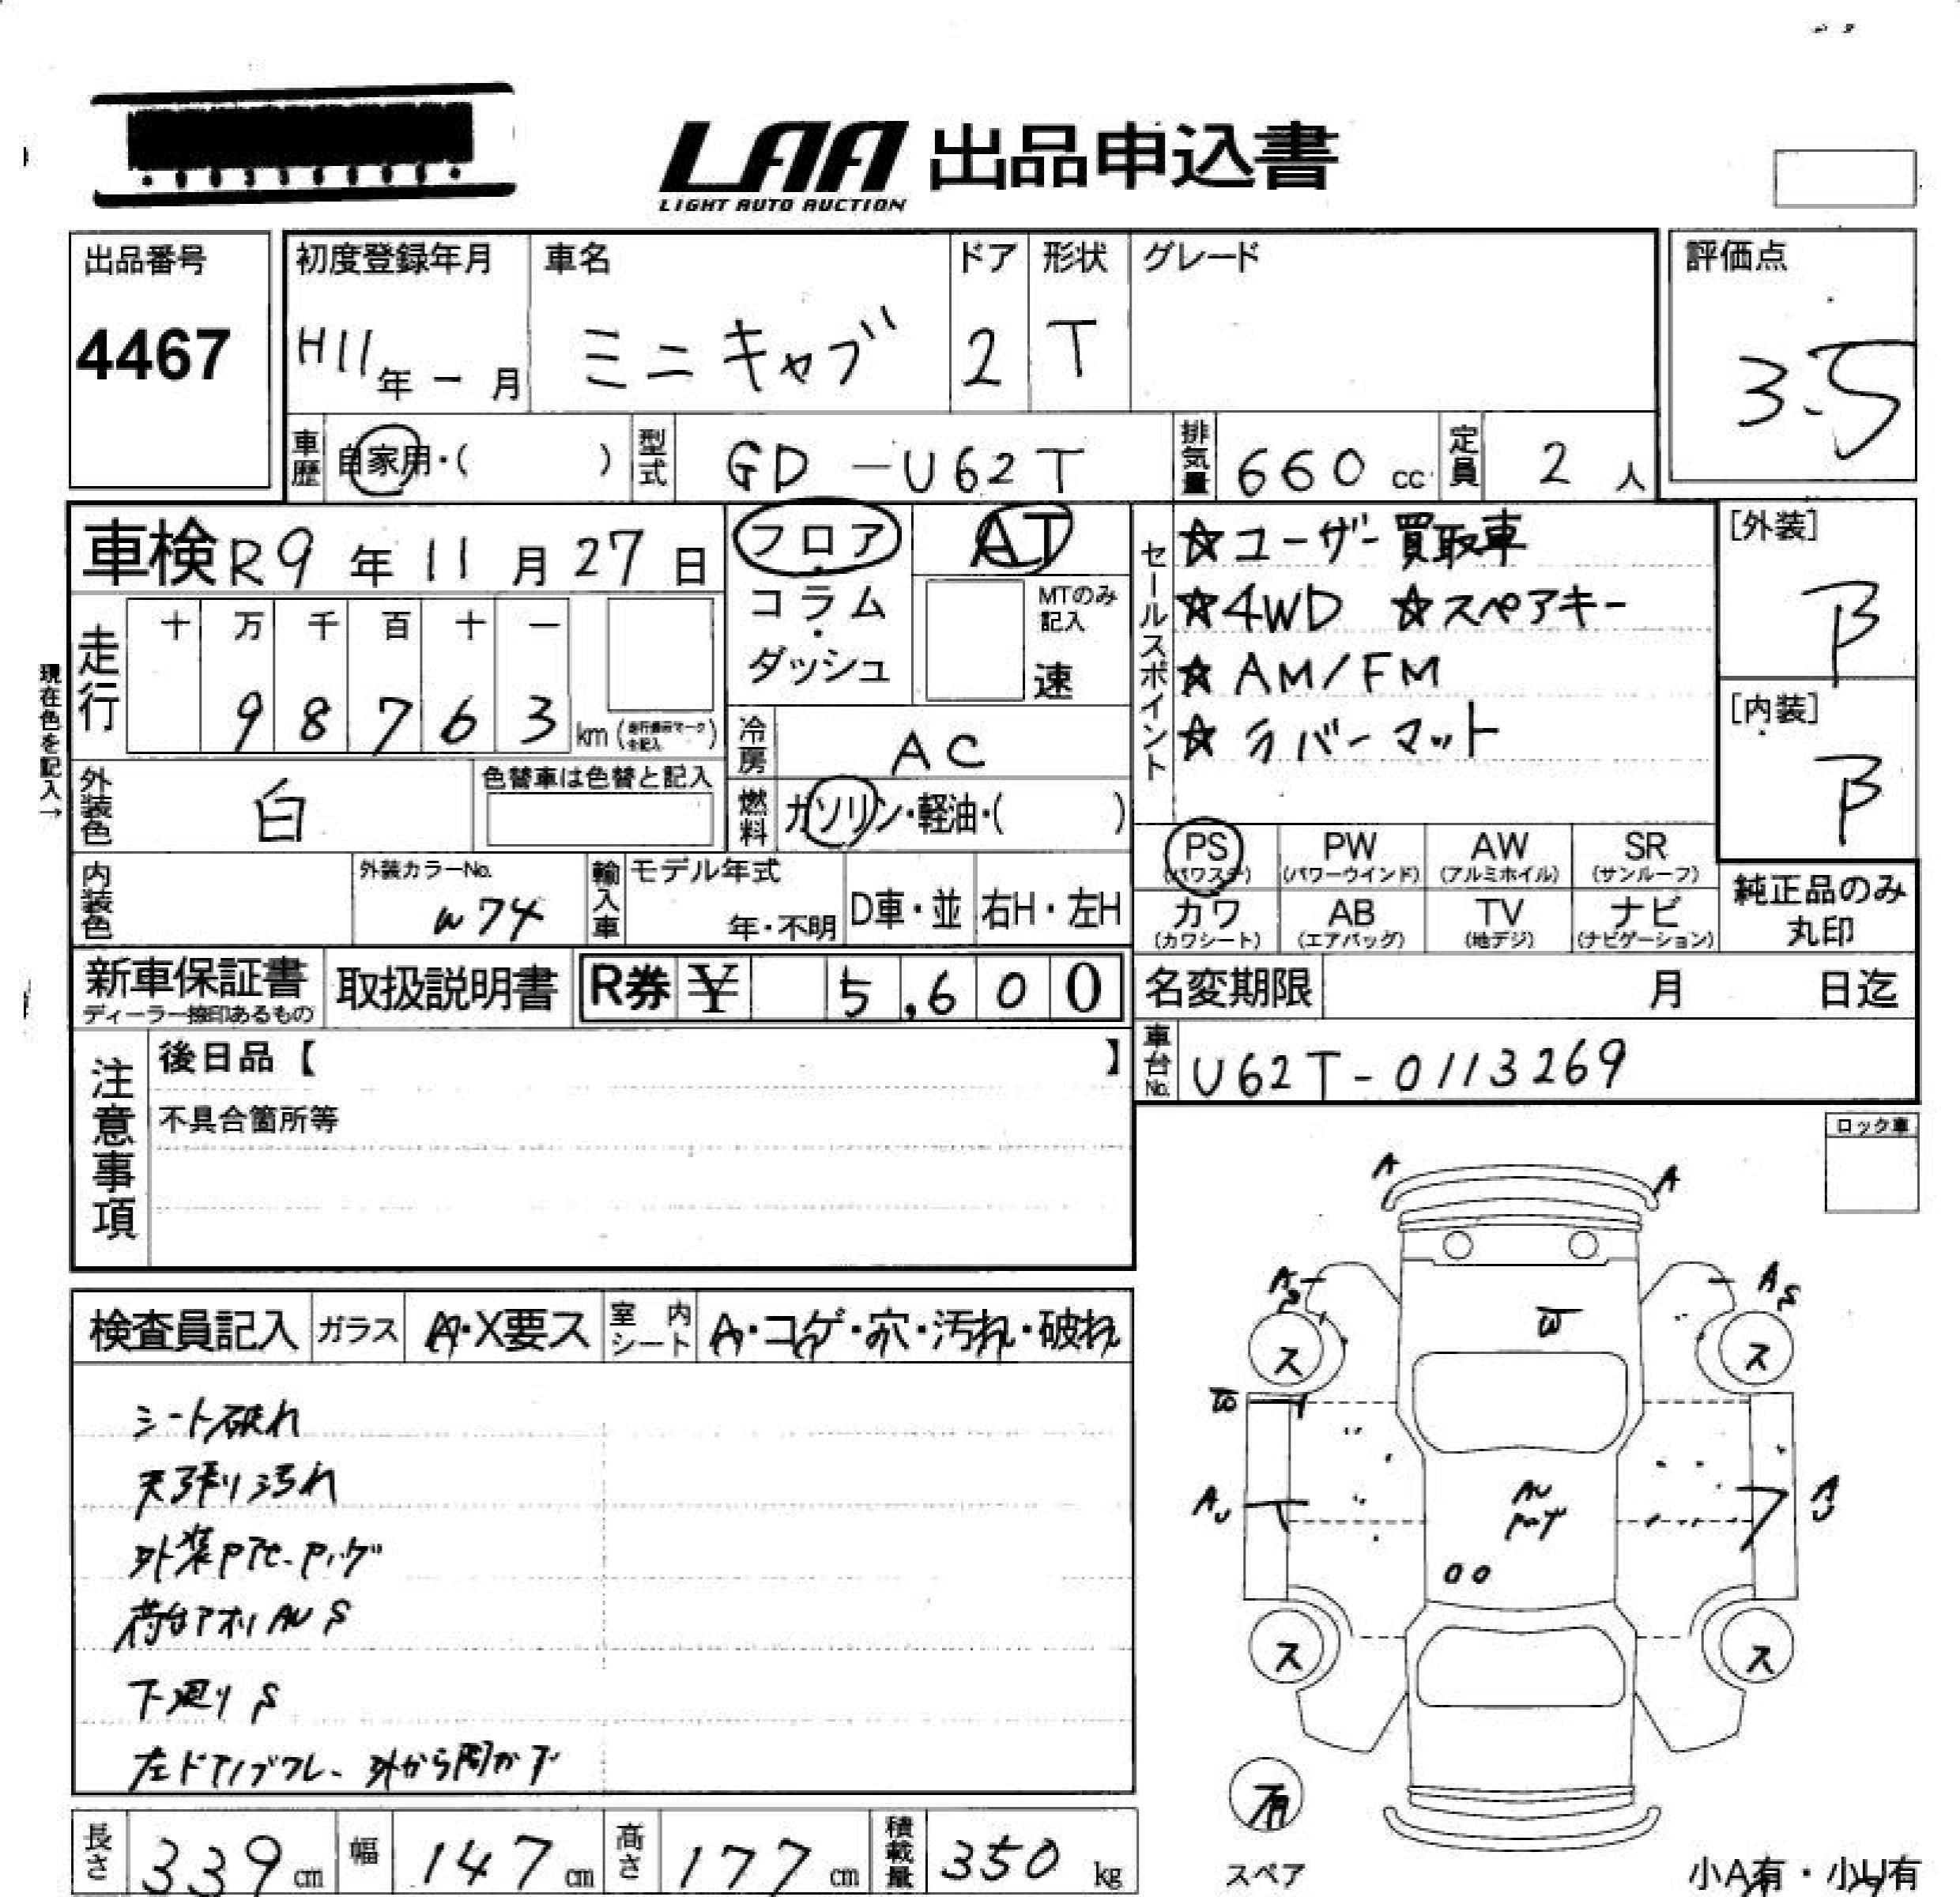 LAA 出品申込書
LIGHT AUTO AUCTION
出品番号
4467
初度登録年月
H11年 - 月
車名
ミニキャブ
ドア
2
形状
T
グレード
評価点
3.5
車歴
自家用・( )
型式
GD-U62T
排気量
660 cc
定員
2 人
車検 R9年11月27日
フロア
・
コラム
・
ダッシュ
AT
MTのみ
記入
速
セールスポイント
☆ユーザー買取車
☆4WD ☆スペアキー
☆AM/FM
☆ラバーマット
[外装]
B
[内装]
B
現在色を記入→
走行
十 万 千 百 十 一
9 8 7 6 3 km
冷房
AC
外装色
白
色替車は色替と記入
燃料
ガソリン・軽油・( )
PS
(パワステ)
PW
(パワーウインド)
AW
(アルミホイル)
SR
(サンルーフ)
カワ
(カワシート)
AB
(エアバッグ)
TV
(地デジ)
ナビ
(ナビゲーション)
純正品のみ
丸印
内装色
外装カラーNo.
W74
輸入車
モデル年式
年・不明
D車・並
右H・左H
新車保証書
ディーラー捺印あるもの
取扱説明書
R券 ¥ 5,600
名変期限 月 日迄
車台No.
U62T-0113269
注意事項
後日品【 】
不具合箇所等
ロック車
検査員記入
ガラス
A・X要ス
室内
シート
A・コゲ・穴・汚れ・破れ
シート破れ
天張り汚れ
荷台アオリ AU S
下廻り S
左ドアノブワレ、外から開かず
A
A
A
S
A
S
W
ス
ス
W
AU
AU
AU
ス
ス
有
スペア
小A有・小U有
長さ
339 cm
幅
147 cm
高さ
177 cm
積載量
350 kg